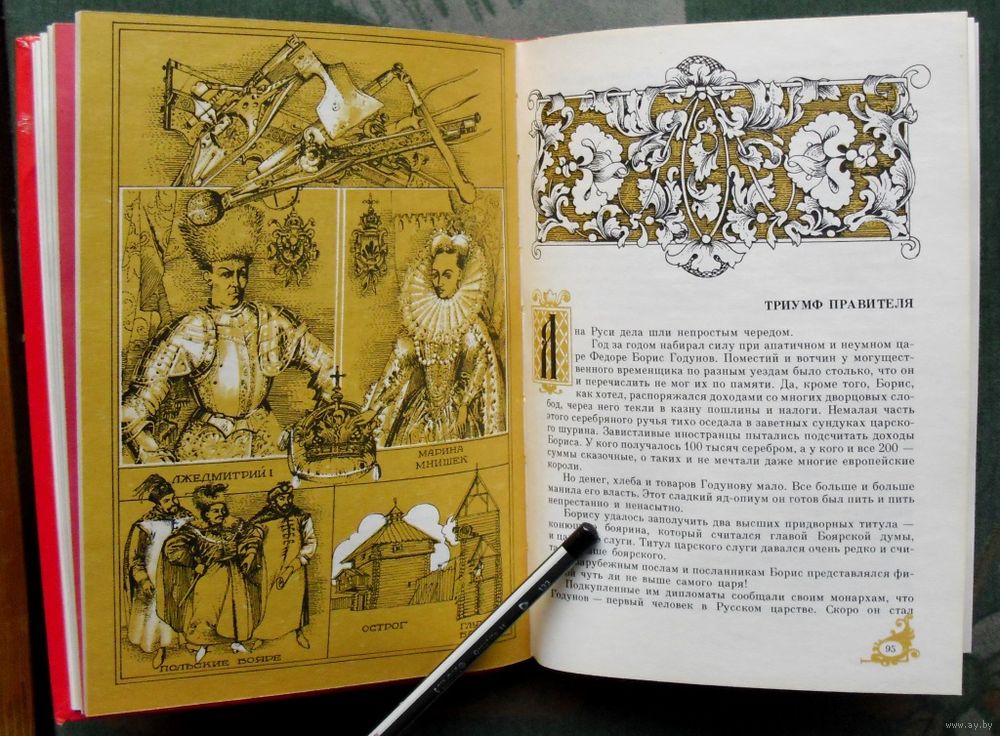 ЛЖЕДМИТРИЙ I
МАРИНА
МНИШЕК
ОСТРОГ
ПОЛЬСКИЕ БОЯРЕ
ТРИУМФ ПРАВИТЕЛЯ
А на Руси дела шли непростым чередом.
Год за годом набирал силу при апатичном и неумном ца-
ре Федоре Борис Годунов. Поместий и вотчин у могущест-
венного временщика по разным уездам было столько, что он
и перечислить не мог их по памяти. Да, кроме того, Борис,
как хотел, распоряжался доходами со многих дворцовых сло-
бод, через него текли в казну пошлины и налоги. Немалая часть
этого серебряного ручья тихо оседала в заветных сундуках царско-
го шурина. Завистливые иностранцы пытались подсчитать доходы
Бориса. У кого получалось 100 тысяч серебром, а у кого и все 200 —
суммы сказочные, о таких и не мечтали даже многие европейские
короли.
Но денег, хлеба и товаров Годунову мало. Все больше и больше
манила его власть. Этот сладкий яд-опиум он готов был пить и пить
непрестанно и ненасытно.
Борису удалось заполучить два высших придворных титула —
боярина, который считался главой Боярской думы,
и слуги. Титул царского слуги давался очень редко и счи-
боярского.
зарубежным послам и посланникам Борис представлялся фи-
чуть ли не выше самого царя!
Подкупленные им дипломаты сообщали своим монархам, что
Годунов — первый человек в Русском царстве. Скоро он стал
95
www.ay.by